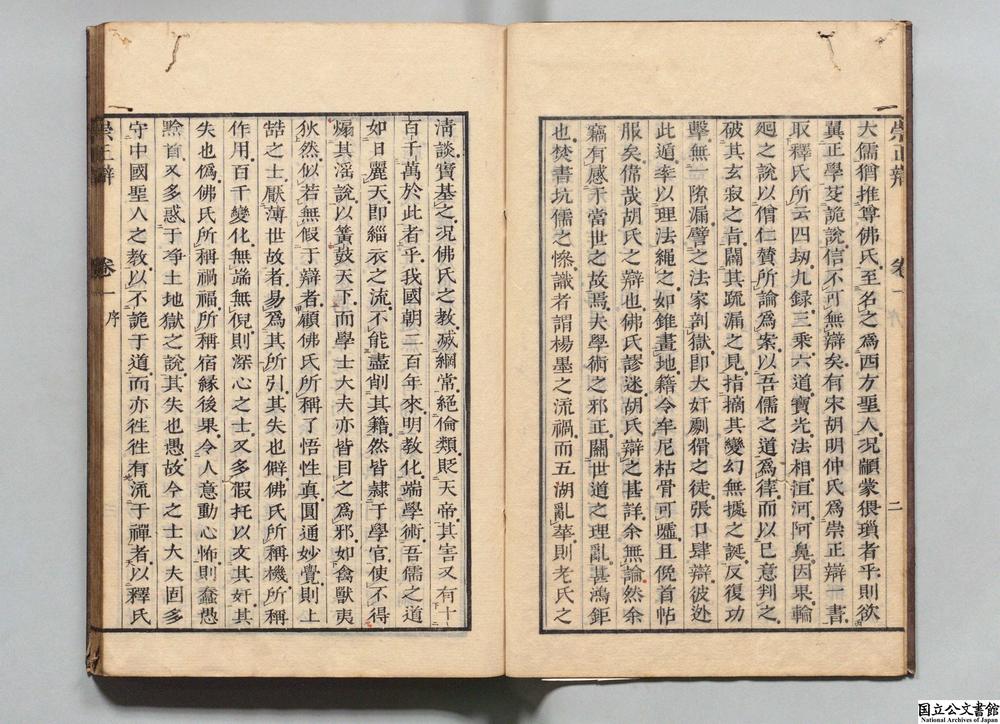 崇正辯
卷一
序
二
大儒猶推尊佛氏至名之爲西方聖人况顓蒙猥瑣者乎則欲
翼正學芟詭說信不可無辯矣有宋胡明仲氏爲崇正辯一書
取釋氏所云四劫九錄三乘六道寶光法相洹河阿鼻因果輪
廻之說以僧仁贊所論爲案以吾儒之道爲律而以已意判之
破其玄寂之旨闢其疏漏之見指摘其變幻無據之誕反復功
擊無一隙漏譬之法家剖獄即大奸劇猾之徒張口肆辯彼迯
此遁率以理法繩之如錐畫地籍令牟尼枯骨可噓且俛首帖
服矣偉哉胡氏之辯也佛氏診迷胡氏辯之甚詳余無論然余
竊有感于當世之故焉夫學術之邪正關世道之理亂甚鴻鉅
也焚書坑儒之慘識者謂楊墨之流禍而五湖亂華則老氏之
清談實基之况佛氏之教滅綱常絕倫類貶天帝其害又有十
百千萬於此者乎我國朝二百年來明教化端學術吾儒之道
如日麗天即緇衣之流不能盡削其籍然皆隸于學官使不得
煽其滛說以簧鼓天下而學士大夫亦皆目之爲邪如禽獸夷
狄然似若無假于辯者顧佛氏所稱了悟性真圓通妙覺則上
喆之士厭薄世故者易爲其所引其失也僻佛氏所稱機所稱
作用百千變化無端無倪則深心之士又多假托以文其奸其
失也僞佛氏所稱禍福所稱宿緣後果令人意動心怖則蠢愚
黔首又多惑于净土地獄之說其失也愚故今之士大夫固多
守中國聖人之教以不詭于道而亦徃徃有流于禪者以釋氏
崇正辯
卷一
序
国立公文書館
National Archives of Japan